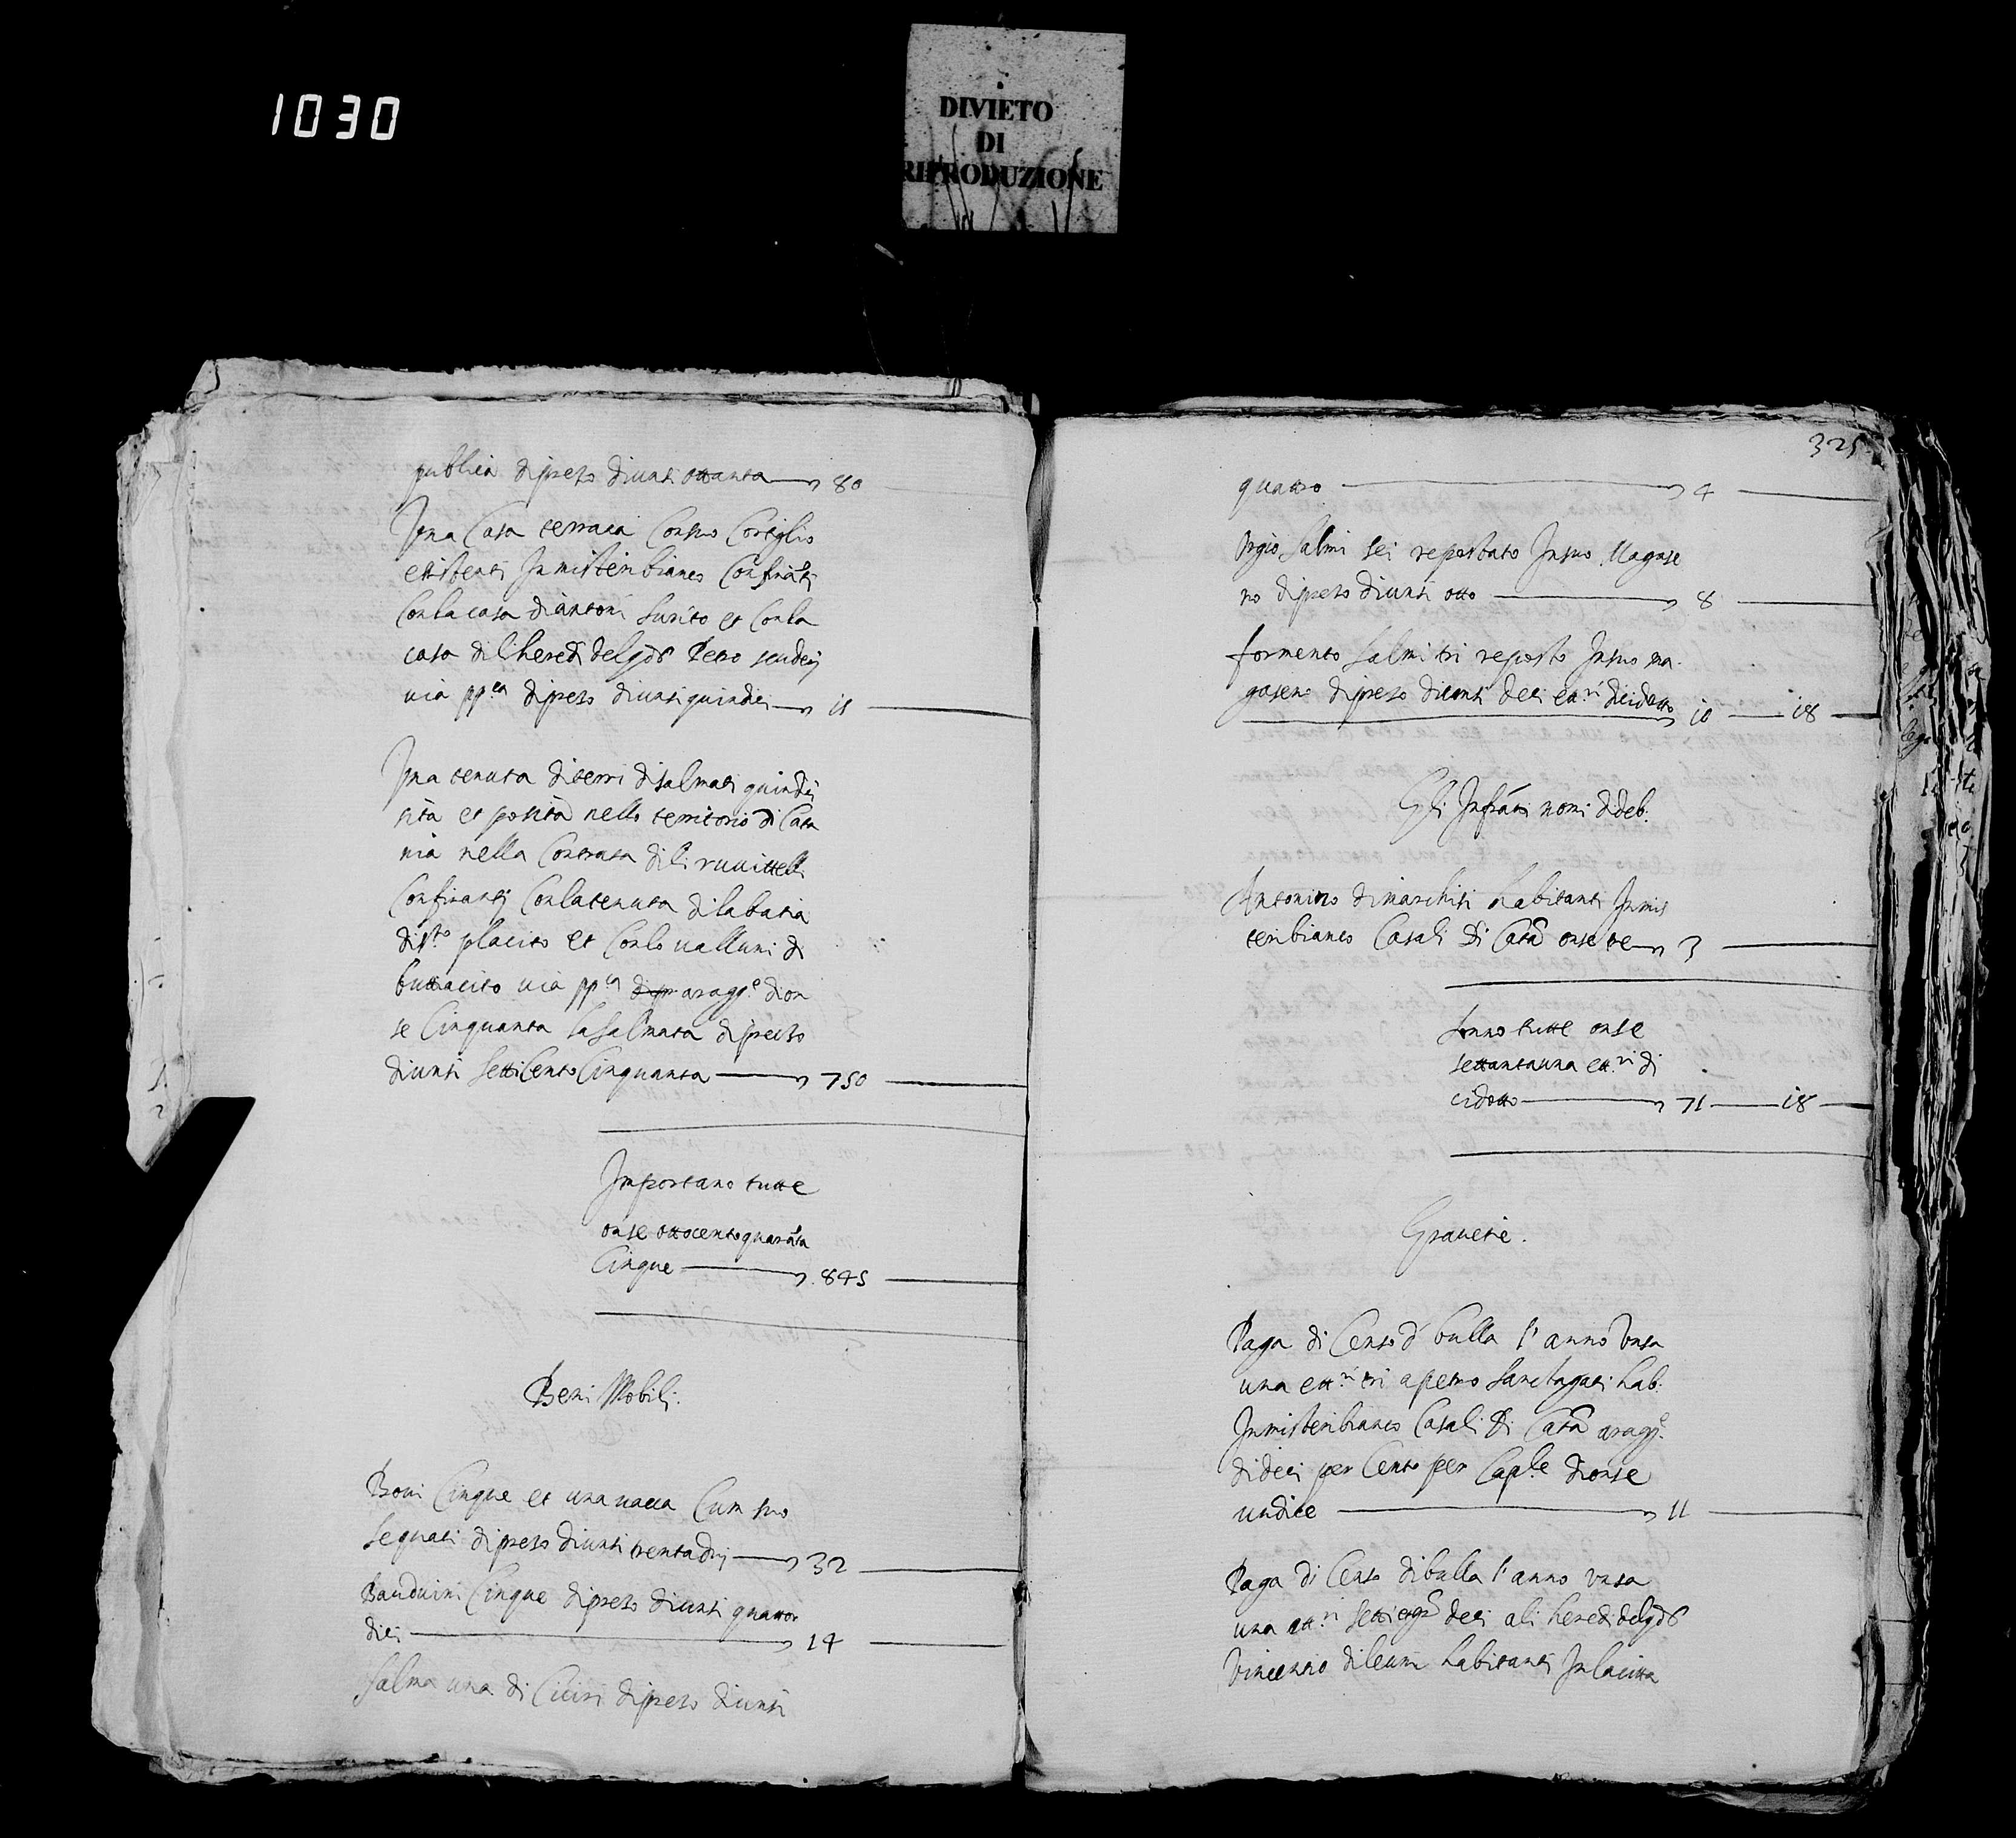 1030
DIVIETO
DI
RIPRODUZIONE
publica di prezo di unzi ottanta 80
Una Casa terrana Con suo Cortiglio
existenti In misterbianco Confinãti
Con la casa di antoni surito et Con la
casa di li heredi del qdā Petro scuderj
via ppca di prezo di unzi quindici 15
Una tenuta di terri di salmati quindici
sita et posita nello territorio di Cata
nia nella Contrata di li ruvittelli
Confinanti Con la tenuta di la batia
di sto placito et Con lo valluni di
buttacito via ppca di pr a ragge di on
se Cinquanta la salmata di prezzo
di unzi setti Cento Cinquanta 750
Importano tutte
onse ottocento quaranta
Cinque 845
Beni Mobili.
Bovi Cinque et una vacca Cum suo
sequati di prezo di unzi trentadui 32
Bauduini Cinque di prezo di unzi quattor
dici 14
Salma una di Ciciri di prezo di unzi
325
quatro 4
Orgio salmi sei repostato In suo Magase
no di prezo di unzi otto 8
formento salmi tri reposto In suo ma-
gaseno di prezo di unzi deci e tt.ri dicidotto 10 18
Gli Infrātti nomi di deb.
Antonino di marchisi habitanti In mis
terbianco Casali di Catā onse tre 3
Sonno tutte onse
settantauna e tt.ri di
cidotto 71 18
Gravetie.
Paga di Censo di bulla l'anno unza
una e tt.ri tri a petro sanctagati hab.
In misterbianco Casali di Catā a ragge
di deci per Cento per Caple di onse
undice 11
Paga di Censo di bulla l'anno unza
una tt.ri setti e grā deci a li heredi del qdā
Vincentio di leuni habitanti In la citta